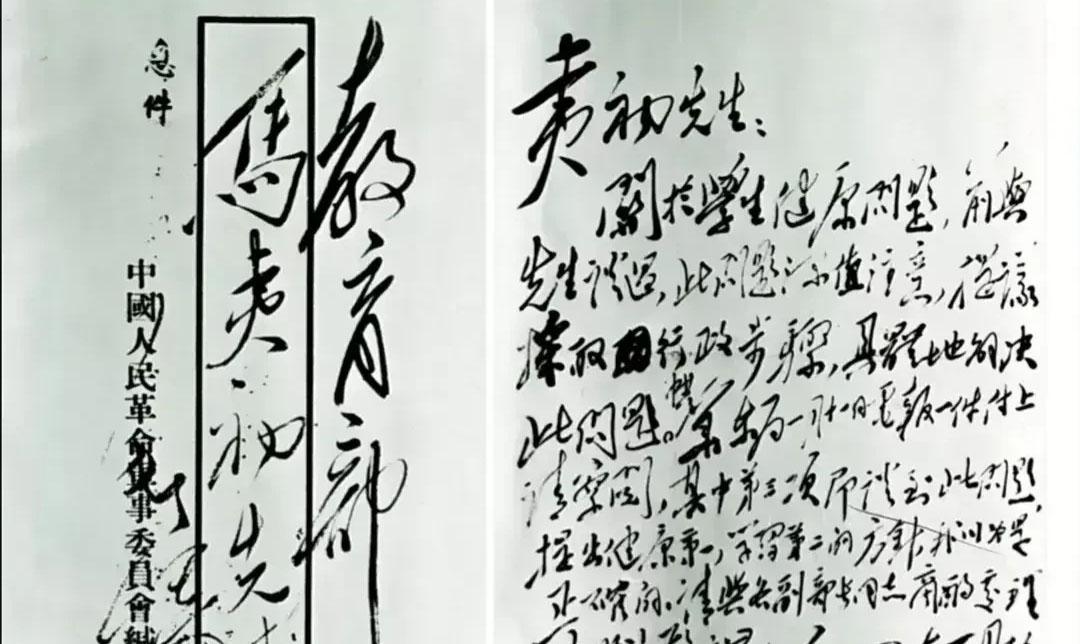 教育部
馬夷初先
急件
中國人民革命軍事委員會緘
夷初先生：
關於學生健康問題，前與
先生談過，此問題深值注意，提議
採取行政步驟，具體地解決
此問題。東局一月十一日電報一件付上
請察閱，其中第三項即談到此問題，
提出健康第一，學習第二的方針，我以為是
正確的。請與各副部長同志商酌處理